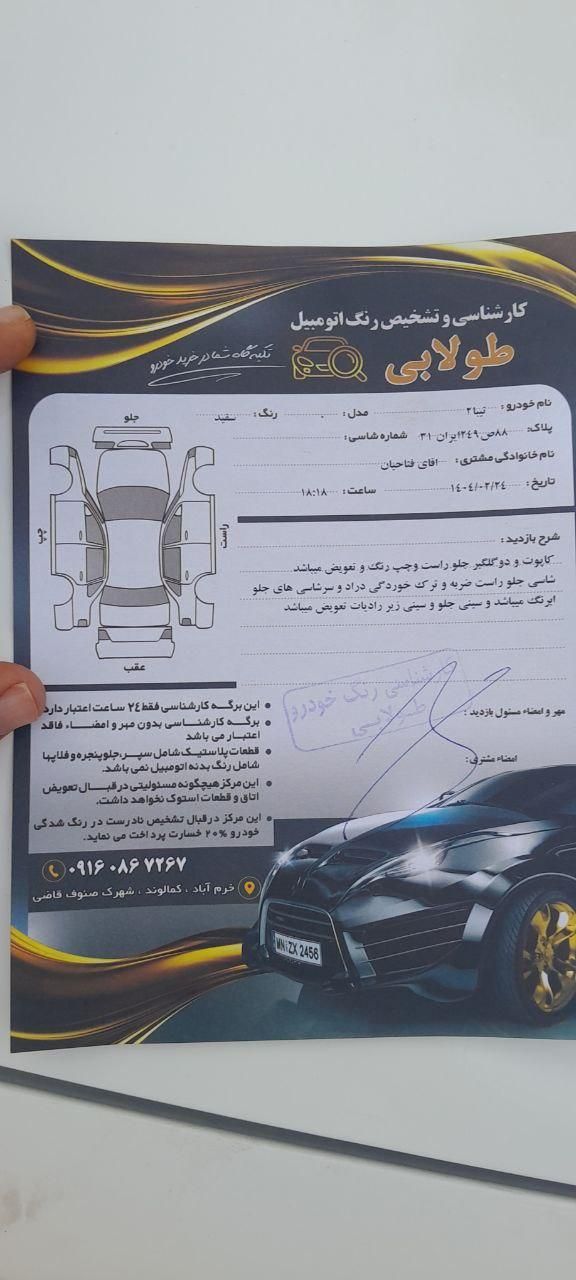 کارشناسی و تشخیص رنگ اتومبیل
طولابی
تکیه گاه شما در خرید خودرو
نام خودرو : تیبا۲ مدل : . رنگ : سفید
پلاک: ۸۸ص۲۴۹ایران ۳۱ شماره شاسی :
نام خانوادگی مشتری : اقای فتاحیان
تاریخ : ۱۴۰۴/۰۲/۲۴ ساعت : ۱۸:۱۸
جلو
چپ
راست
عقب
شرح بازدید :
کاپوت و دو گلگیر جلو راست وچپ رنگ و تعویض میباشد
شاسی جلو راست ضربه و ترک خوردگی دراد و سرشاسی های جلو
ابرنگ میباشد و سینی جلو و سینی زیر رادیات تعویض میباشد
این برگه کارشناسی فقط ۲۴ ساعت اعتبار دارد
برگه کارشناسی بدون مهر و امضاء فاقد
اعتبار می باشد
قطعات پلاستیک شامل سپر،جلوپنجره و فلاپها
شامل رنگ بدنه اتومبیل نمی باشد.
این مرکز هیچگونه مسئولیتی در قبال تعویض
اتاق و قطعات استوک نخواهد داشت.
این مرکز درقبال تشخیص نادرست در رنگ شدگی
خودرو ۲۰% خسارت پرداخت می نماید.
کارشناسی رنگ خودرو
طولابی
مهر و امضاء مسئول بازدید :
امضاء مشتری :
۰۹۱۶ ۰۸۶ ۷۲۶۷
خرم آباد ، کمالوند ، شهرک صنوف قاضی
MN:ZX 2456